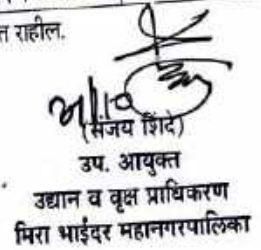 त राहील.
(संजय शिंदे)
उप. आयुक्त
उद्यान व वृक्ष प्राधिकरण
मिरा भाईंदर महानगरपालिका